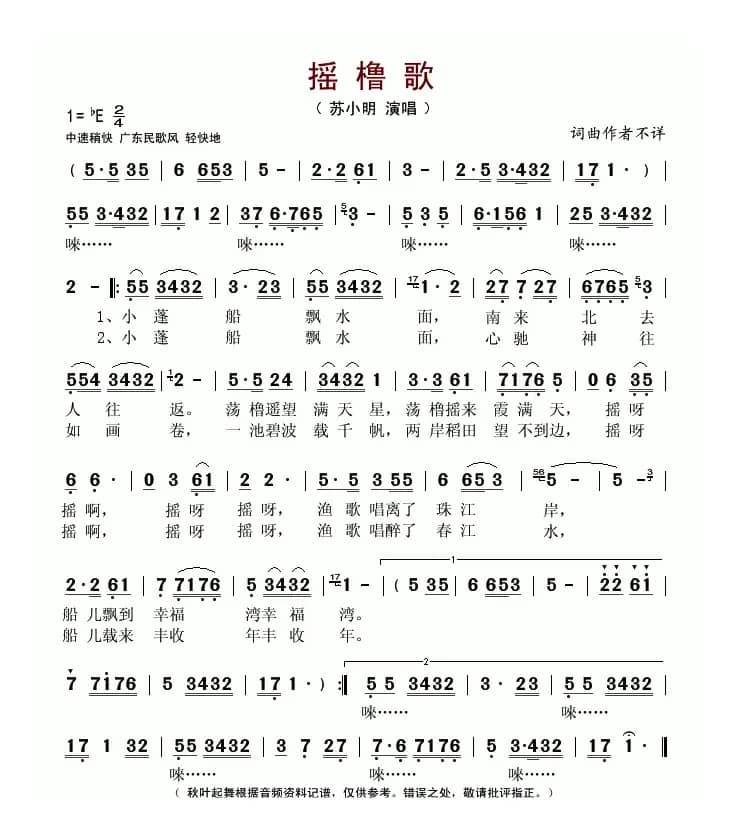 摇 橹 歌
（ 苏小明 演唱 ）
1= ♭E 2/4
中速稍快 广东民歌风 轻快地
词曲作者不详
( 5·5 35 | 6 653 | 5 - | 2·2 61 | 3 - | 2·2 5 | 5 3·432 | 171· ) |
55 3·432 | 17 1 2 | 37 6·765 | 5 3 - | 5 3 5 | 6·156 1 | 25 3·432 | 17 1 |
唻…… 唻…… 唻…… 唻……
2 - |: 55 3432 | 3· 23 | 55 3432 | 17 1· 2 | 27 7 27 | 6765 5 3 |
1、小 蓬 船 飘 水 面， 南 来 北 去
2、小 蓬 船 飘 水 面， 心 驰 神 往
554 3432 | 1 2 - | 5·5 24 | 3432 1 | 3·3 61 | 7176 5 | 06 35 |
人 往 返。 荡 橹遥望 满 天 星，荡 橹摇来 霞 满 天， 摇 呀
如 画 卷， 一 池碧波 载 千 帆，两 岸稻田 望 不到边， 摇 呀
6 6· | 0 3 61 | 2 2· | 5·5 355 | 6 653 | 56 5 - | 5 - 3 |
摇 啊， 摇 呀 摇 呀， 渔 歌 唱离了 珠 江 岸，
摇 啊， 摇 呀 摇 呀， 渔 歌 唱醉了 春 江 水，
1
2·2 61 | 7 7176 | 5 3432 | 17 1 - | ( 5 35 | 6 653 | 5 - | 22 61 |
船 儿飘到 幸福 湾幸 福 湾。
船 儿载来 丰收 年丰 收 年。
2
7 7176 | 5 3432 | 17 1· ) :| 5 5 3432 | 3· 23 | 5 5 3432 |
唻…… 唻……
17 1 32 | 55 3432 | 3 7 27 | 7·6 7176 | 5 3·432 | 17 1· |
唻…… 唻…… 唻……
（ 秋叶起舞根据音频资料记谱，仅供参考。错误之处，敬请批评指正。）